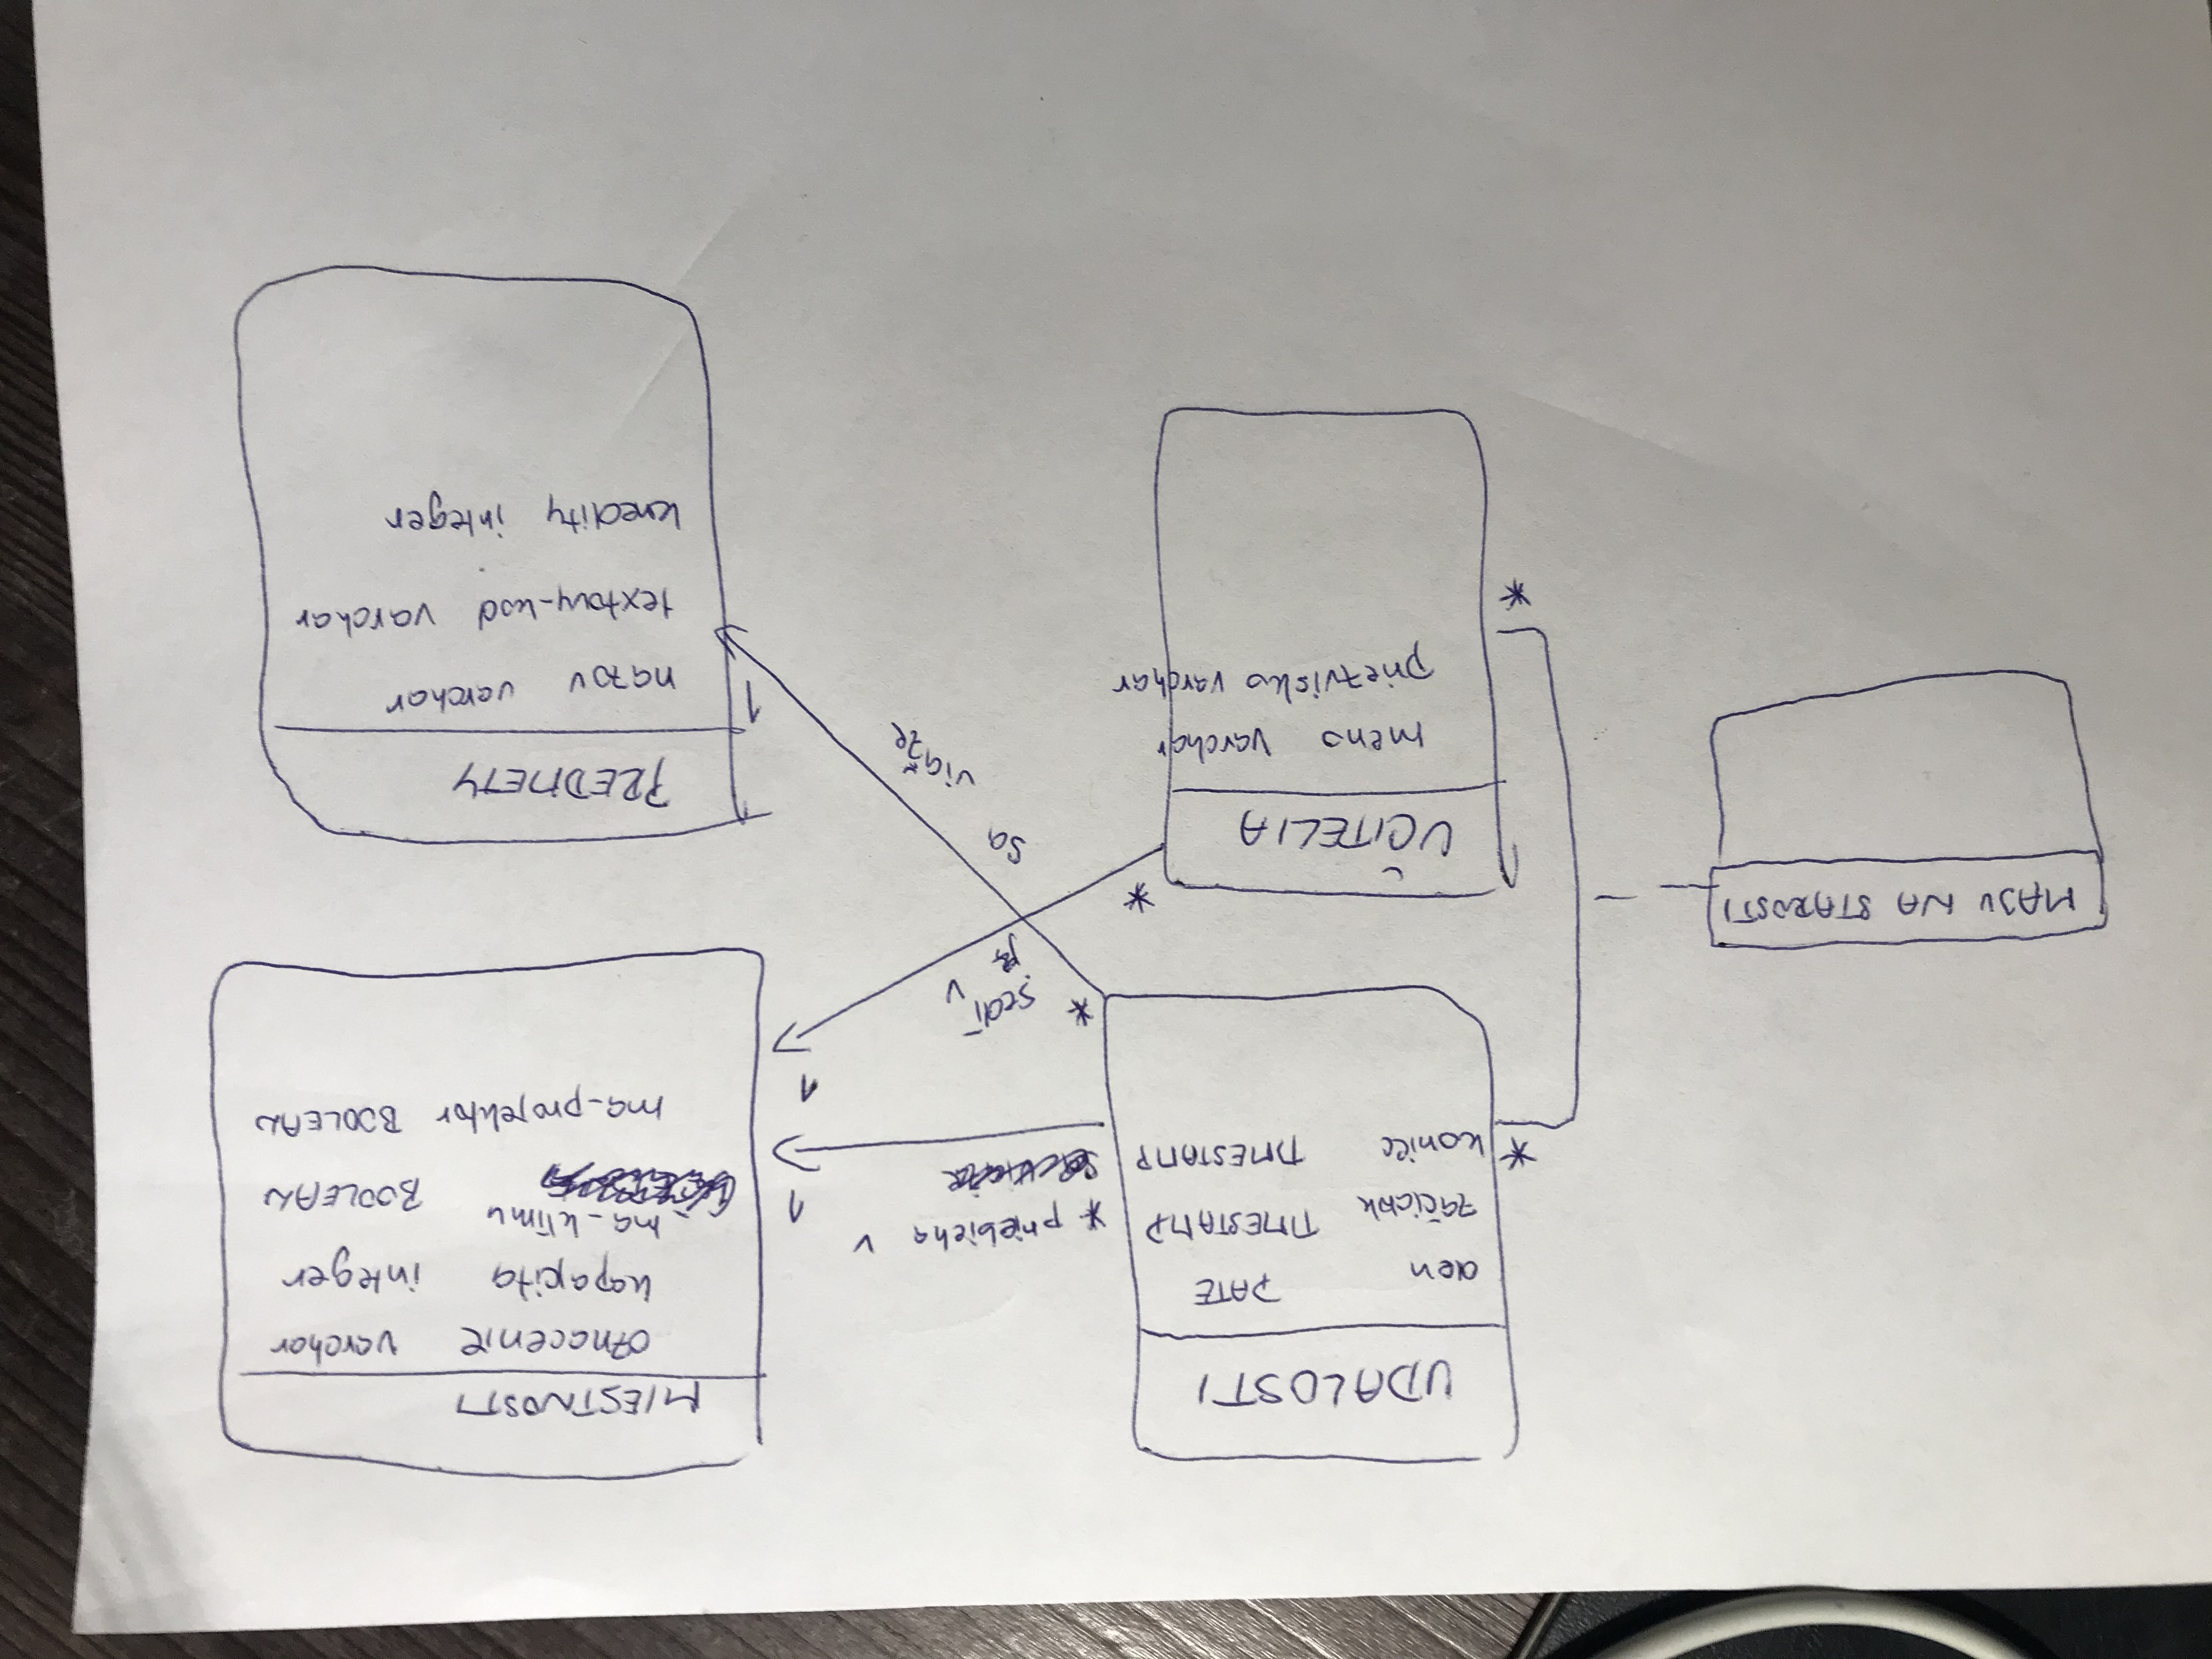 UDALOSTI
den DATE
začiatok TIMESTAMP
* koniec TIMESTAMP
* priebieha v
1
MIESTNOSTI
oznacenie varchar
kapacita integer
ma_klimu BOOLEAN
ma_projektor BOOLEAN
1
* sedí v
*
MAJU NA STAROSTI
UČITELIA
meno varchar
priezvisko varchar
*
sa
viaže
1
PREDMETY
nazov varchar
textovy_kod varchar
kredity integer